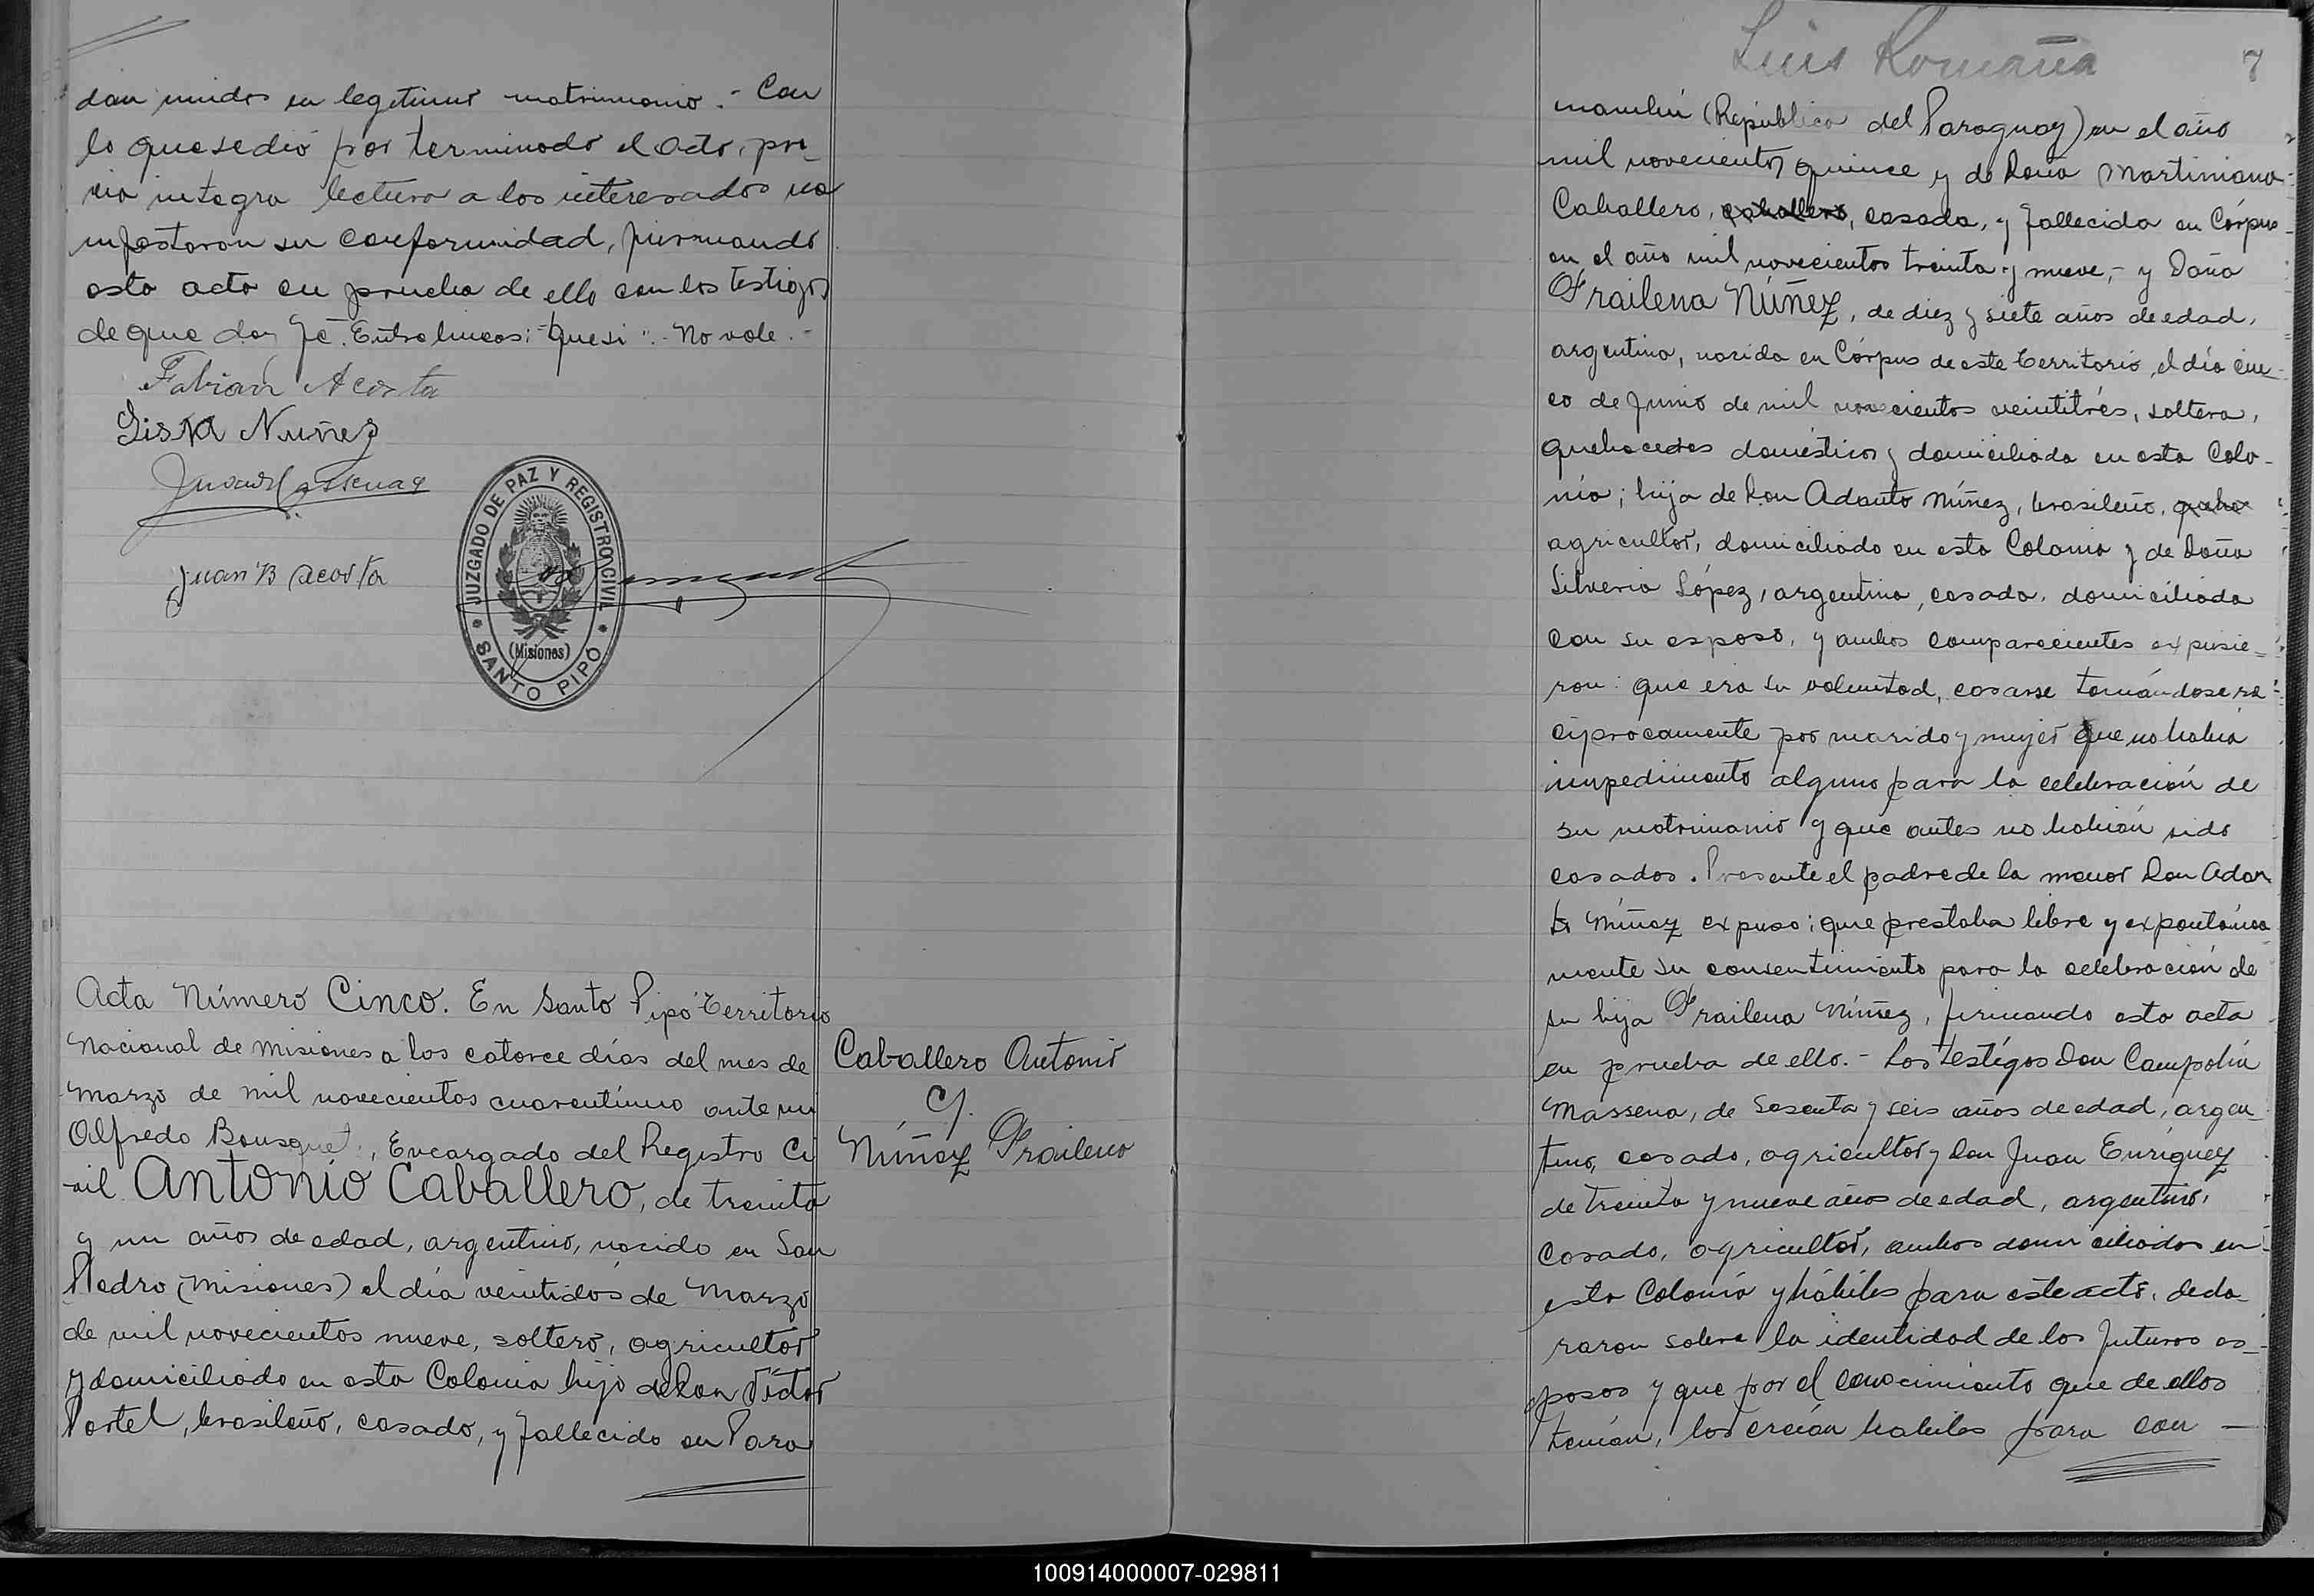 dan unidos en legitimo matrimonio.- Con
lo que se dió por terminado el acto, pre-
via integra lectura a los interesados ma
nifestaron su conformidad, firmando
esta acta en prueba de ello con los testigos
de que doy fé. Entre lineas: "que si". No vale.-
Fabian Acosta
Nuñez
Juan B Acosta
JUZGADO DE PAZ Y REGISTRO CIVIL
(Misiones)
SANTO PIPO
Acta Número Cinco. En Santo Pipó Territorio
Nacional de Misiones a los catorce días del mes de
Marzo de mil novecientos cuarentiuno ante mi
Alfredo Bousquet, Encargado del Registro Ci
vil Antonio Caballero, de treinta
y un años de edad, argentino, nacido en San
Pedro (Misiones) el día veintidós de Marzo
de mil novecientos nueve, soltero, agricultor
y domiciliado en esta Colonia hijo de Don Victor
Portel, brasileño, casado, y fallecido en Para
Caballero Antonio
c/.
Núñez Frailena
Luis Romaña
7
mambú (República del Paraguay) en el año
mil novecientos quince y de Doña Martiniana
Caballero, caballero, casada, y fallecida en Córpus
en el año mil novecientos treinta y nueve,- y Doña
Frailena Núñez, de diez y siete años de edad,
argentina, nacida en Córpus de este Territorio, el día cin-
co de Junio de mil novecientos veintitrés, soltera,
quehaceres domésticos y domiciliada en esta Colo-
nia; hija de Don Adanto Núñez, brasileño, queha
agricultor, domiciliado en esta Colonia y de Doña
Silveria López, argentina, casada, domiciliada
con su esposo, y ambos comparecientes expusie-
ron: que era su voluntad, casarse tomándose re-
ciprocamente por marido y mujer que no habia
impedimento alguno para la celebración de
su matrimonio y que antes no habián sido
casados. Presente el padre de la menor Don Adan
to Núñez expuso: que prestaba libre y expontánea
mente su consentimiento para la celebración de
su hija Frailena Núñez, firmando esta acta
en prueba de ello.- Los testigos Don Campolin
Massena, de sesenta y seis años de edad, argen-
tino, casado, agricultor y Don Juan Enriquez
de treinta y nueve años de edad, argentino,
casado, agricultor, ambos domiciliados en
esta Colonia y hábiles para este acto, decla-
raron sobre la identidad de los futuros es-
posos y que por el conocimiento que de ellos
tenián, los creián habiles para con-
100914000007-029811